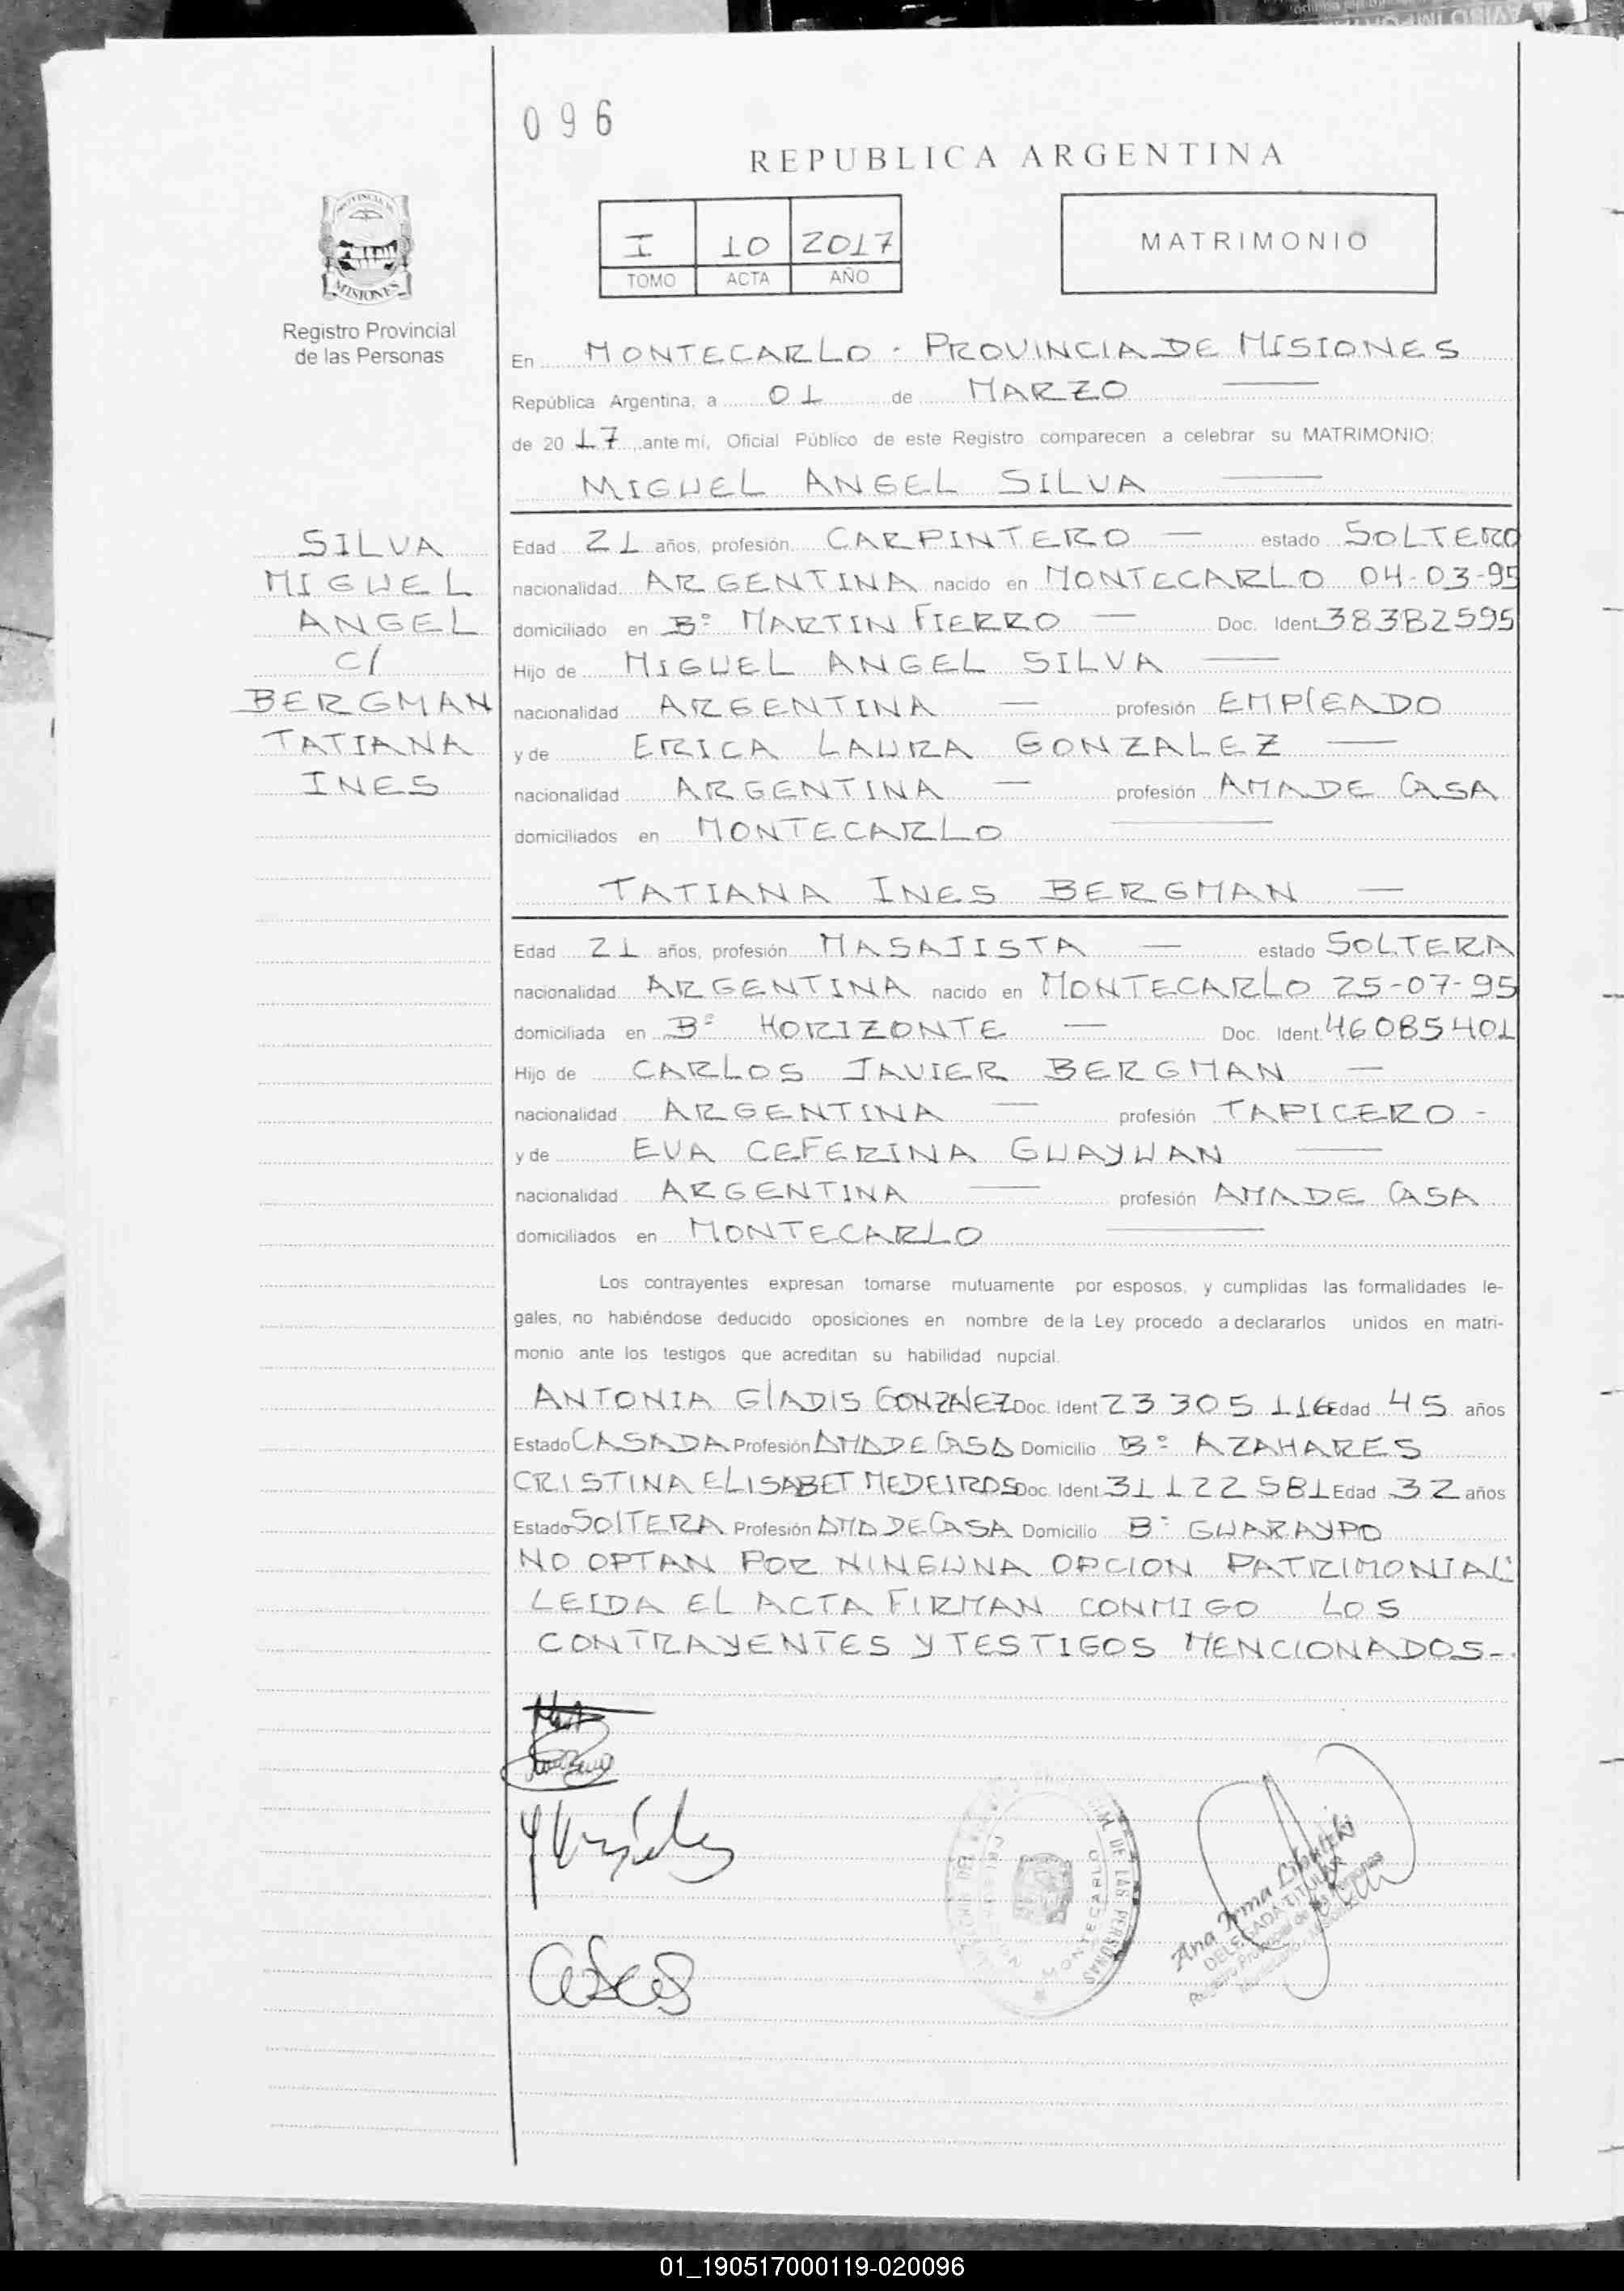 096
REPUBLICA ARGENTINA
I 10 2017
TOMO ACTA AÑO
MATRIMONIO
PROVINCIA DE
MISIONES
Registro Provincial
de las Personas
En MONTECARLO - PROVINCIA DE MISIONES
República Argentina, a 01 de MARZO
de 2017, ante mí, Oficial Público de este Registro comparecen a celebrar su MATRIMONIO:
MIGUEL ANGEL SILVA
SILVA
MIGUEL
ANGEL
C/
BERGMAN
TATIANA
INES
Edad 21 años, profesión CARPINTERO — estado SOLTERO
nacionalidad ARGENTINA nacido en MONTECARLO 04-03-95
domiciliado en Bº MARTIN FIERRO — Doc. Ident 38382595
Hijo de MIGUEL ANGEL SILVA —
nacionalidad ARGENTINA — profesión EMPLEADO
y de ERICA LAURA GONZALEZ —
nacionalidad ARGENTINA — profesión AMA DE CASA
domiciliados en MONTECARLO —
TATIANA INES BERGMAN —
Edad 21 años, profesión MASAJISTA — estado SOLTERA
nacionalidad ARGENTINA nacido en MONTECARLO 25-07-95
domiciliada en Bº HORIZONTE — Doc. Ident. 46085401
Hijo de CARLOS JAVIER BERGMAN —
nacionalidad ARGENTINA — profesión TAPICERO -
y de EVA CEFERINA GUAYUAN —
nacionalidad ARGENTINA — profesión AMA DE CASA
domiciliados en MONTECARLO —
Los contrayentes expresan tomarse mutuamente por esposos, y cumplidas las formalidades le-
gales, no habiéndose deducido oposiciones en nombre de la Ley procedo a declararlos unidos en matri-
monio ante los testigos que acreditan su habilidad nupcial.
ANTONIA GLADIS GONZALEZ Doc. Ident 23 305 116 Edad 45 años
Estado CASADA Profesión AMA DE CASA Domicilio Bº AZAHARES
CRISTINA ELISABET MEDEIROS Doc. Ident 31 122 581 Edad 32 años
Estado SOLTERA Profesión AMA DE CASA Domicilio Bº GUARAYPO
NO OPTAN POR NINGUNA OPCION PATRIMONIAL
LEIDA EL ACTA FIRMAN CONMIGO LOS
CONTRAYENTES Y TESTIGOS MENCIONADOS-.
DE LAS PERSONAS
MONTECARLO
Ana Irma
DELEGADA TITULAR
01_190517000119-020096